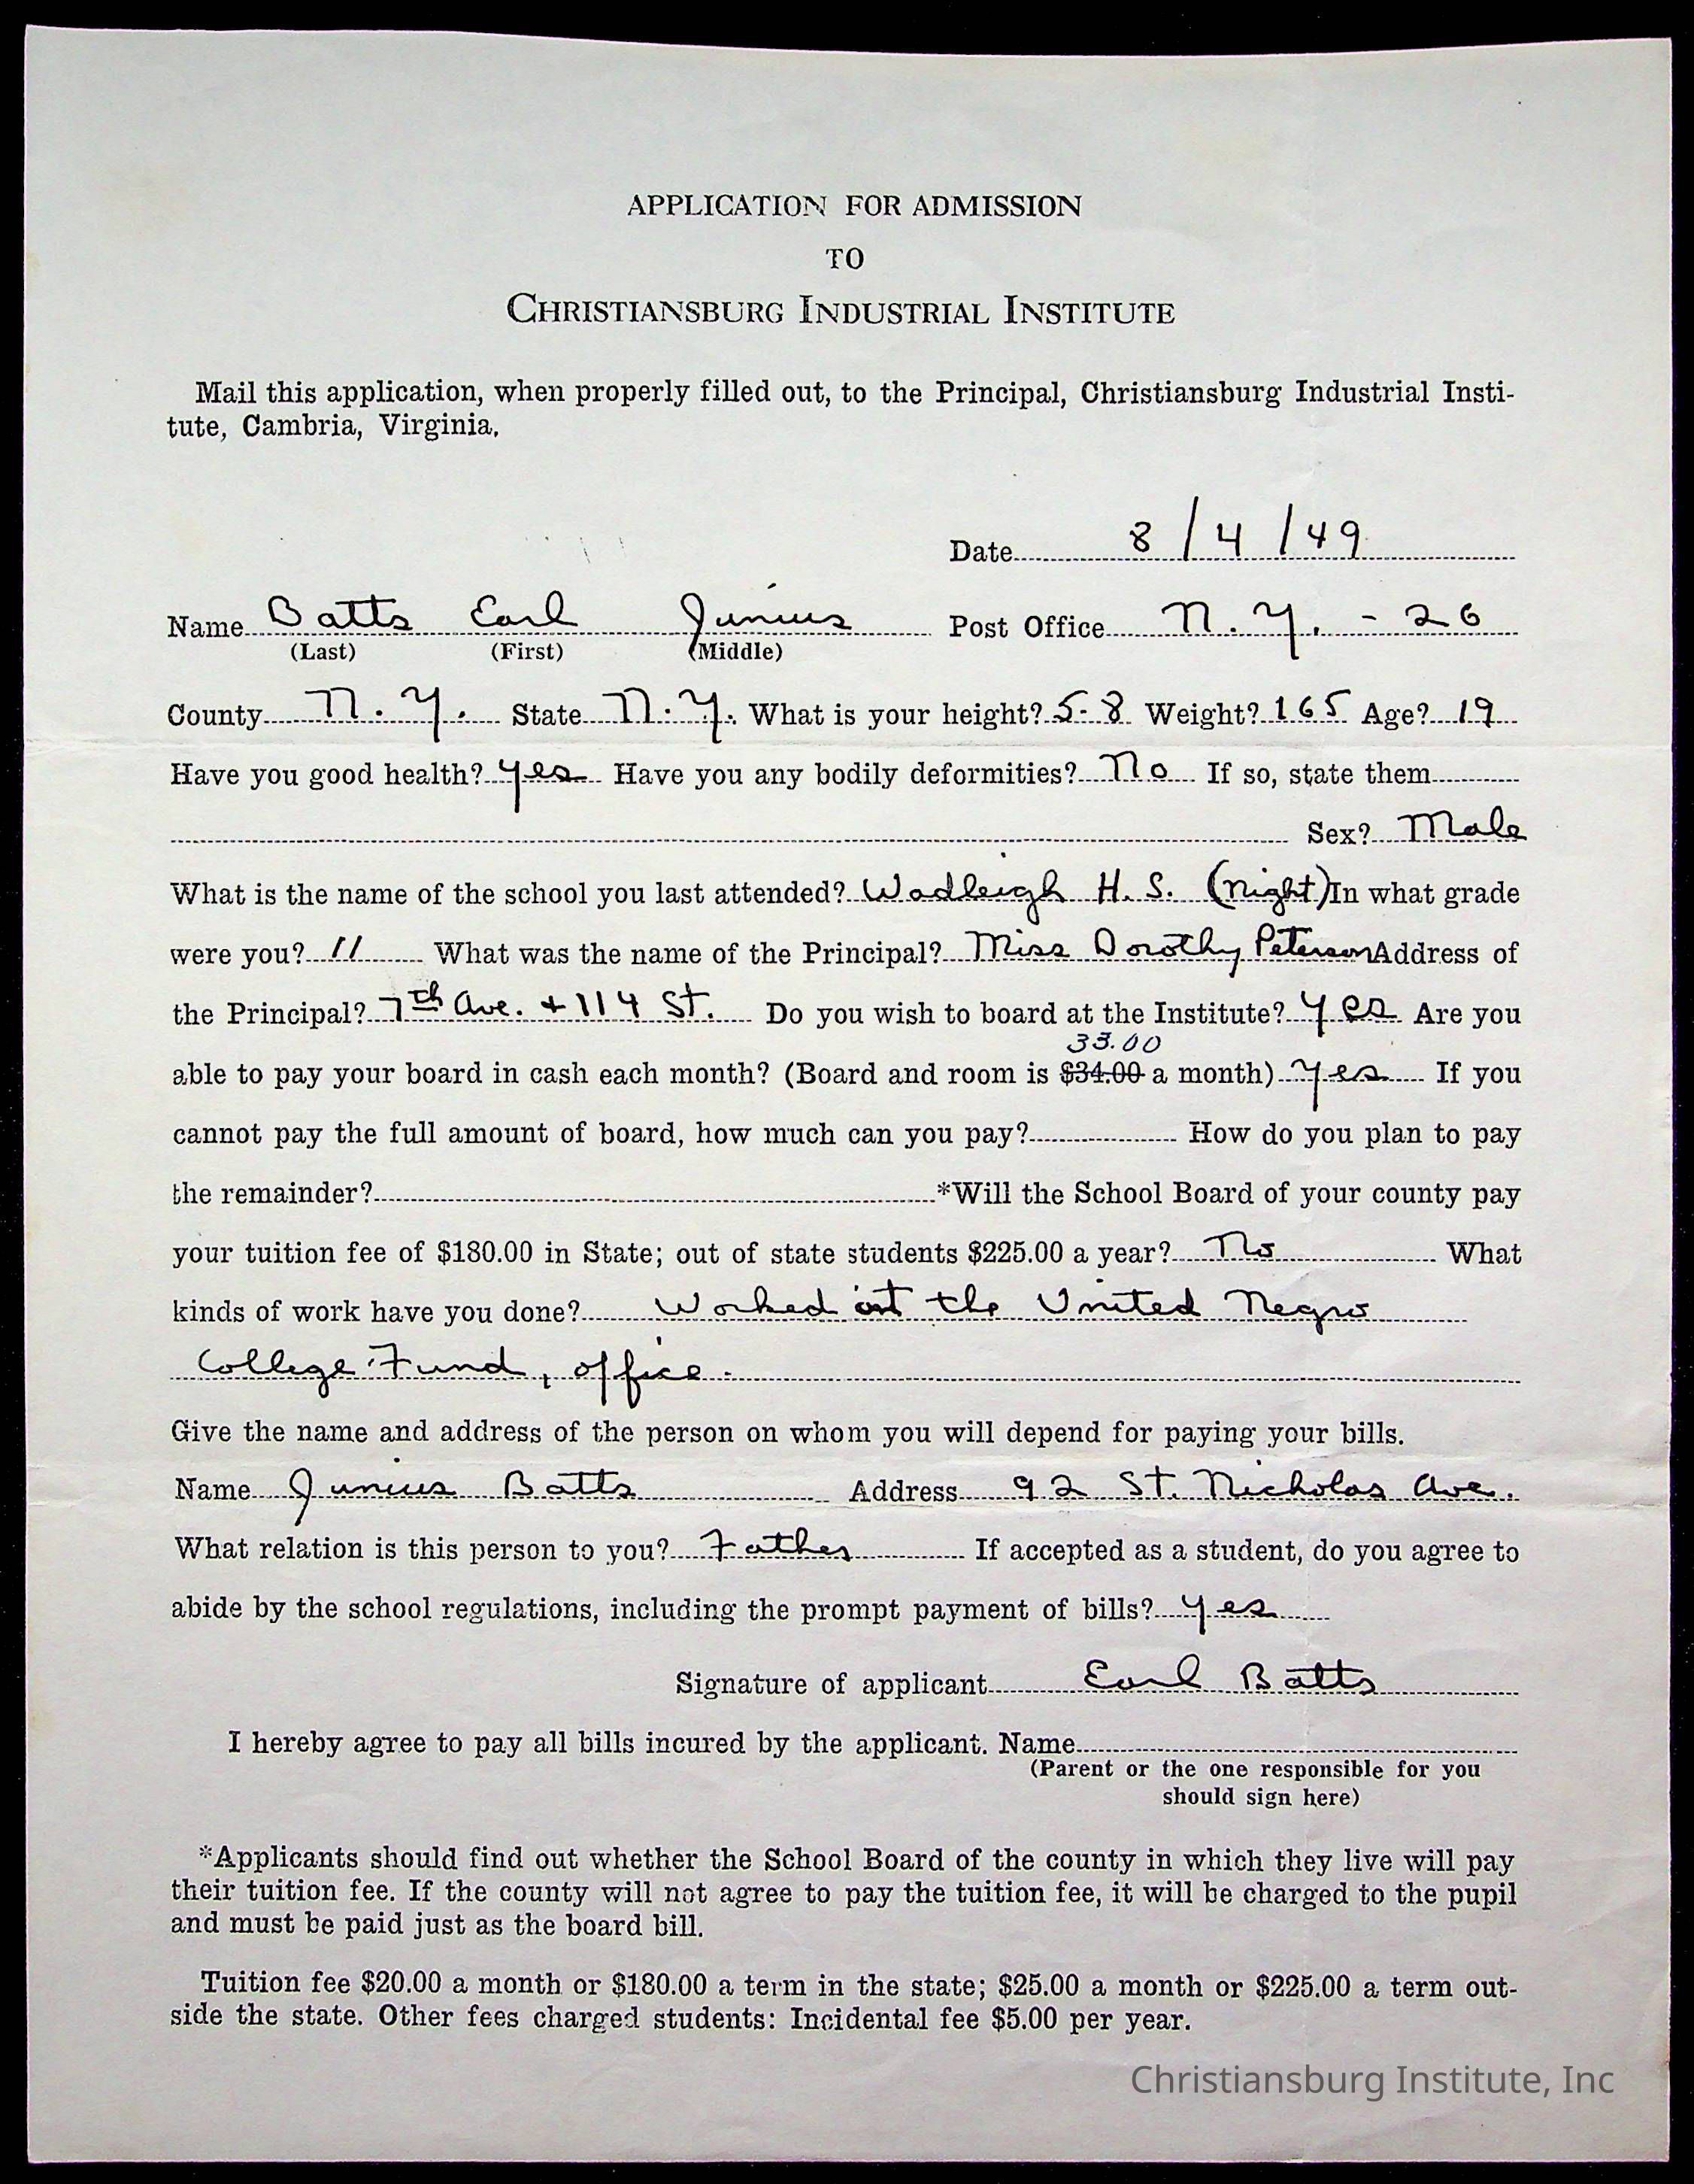 APPLICATION FOR ADMISSION
TO
CHRISTIANSBURG INDUSTRIAL INSTITUTE
Mail this application, when properly filled out, to the Principal, Christiansburg Industrial Insti-
tute, Cambria, Virginia.
Date 8/4/49
Name Batts Earl Junius Post Office N.Y. - 26
(Last) (First) (Middle)
County N.Y. State N.Y. What is your height? 5-8 Weight? 165 Age? 19
Have you good health? yes Have you any bodily deformities? No If so, state them
Sex? Male
What is the name of the school you last attended? Wadleigh H.S. (night) In what grade
were you? 11 What was the name of the Principal? Miss Dorothy Peterson Address of
the Principal? 7th Ave. + 114 St. Do you wish to board at the Institute? yes Are you
33.00
able to pay your board in cash each month? (Board and room is $34.00 a month) yes If you
cannot pay the full amount of board, how much can you pay? How do you plan to pay
the remainder? *Will the School Board of your county pay
your tuition fee of $180.00 in State; out of state students $225.00 a year? No What
kinds of work have you done? Worked at the United Negro
College Fund, office.
Give the name and address of the person on whom you will depend for paying your bills.
Name Junius Batts Address 92 St. Nicholas Ave.
What relation is this person to you? Father If accepted as a student, do you agree to
abide by the school regulations, including the prompt payment of bills? yes
Signature of applicant Earl Batts
I hereby agree to pay all bills incured by the applicant. Name
(Parent or the one responsible for you
should sign here)
*Applicants should find out whether the School Board of the county in which they live will pay
their tuition fee. If the county will not agree to pay the tuition fee, it will be charged to the pupil
and must be paid just as the board bill.
Tuition fee $20.00 a month or $180.00 a term in the state; $25.00 a month or $225.00 a term out-
side the state. Other fees charged students: Incidental fee $5.00 per year.
Christiansburg Institute, Inc